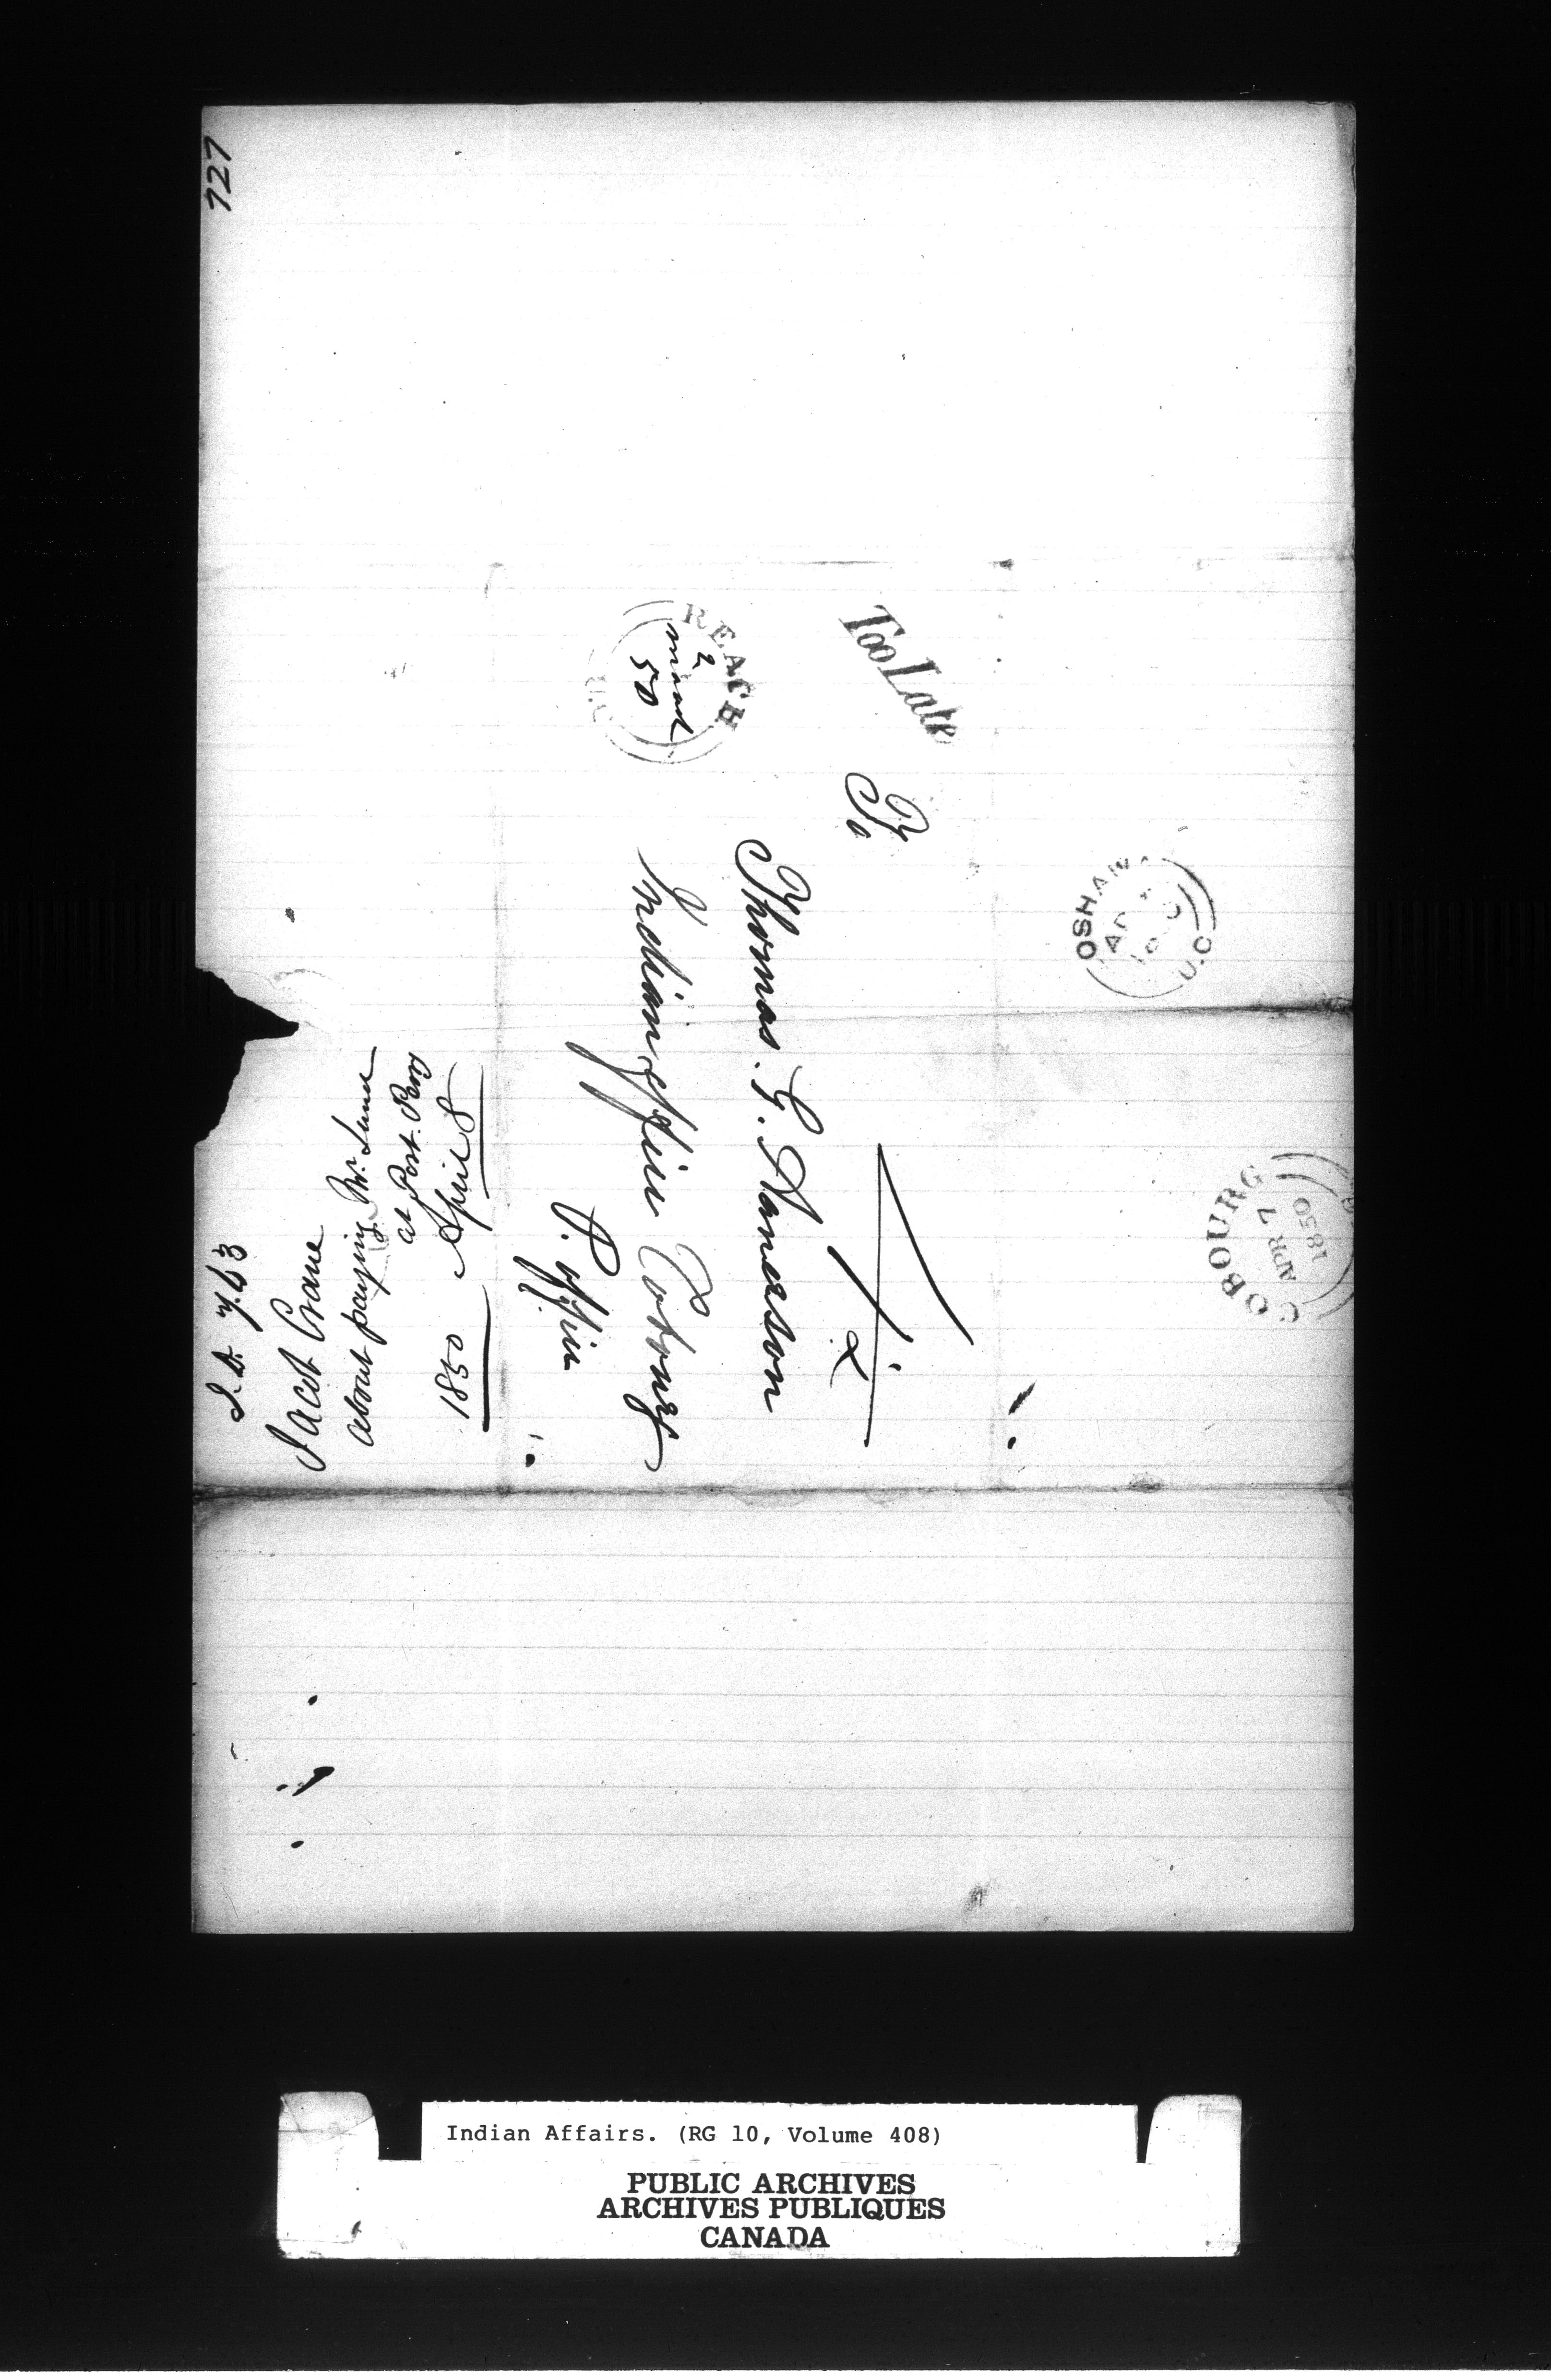 727
REACH
2
50
Too Late
To
Thomas. G. Anderson
Indian Office Cobourg
P. Office
OSHAWA
U.C
COBOURG
APR 7
1850
Jacob Crane
about paying Mr.
at Port Perry
1850 April 8
Indian Affairs. (RG 10, Volume 408)
PUBLIC ARCHIVES
ARCHIVES PUBLIQUES
CANADA